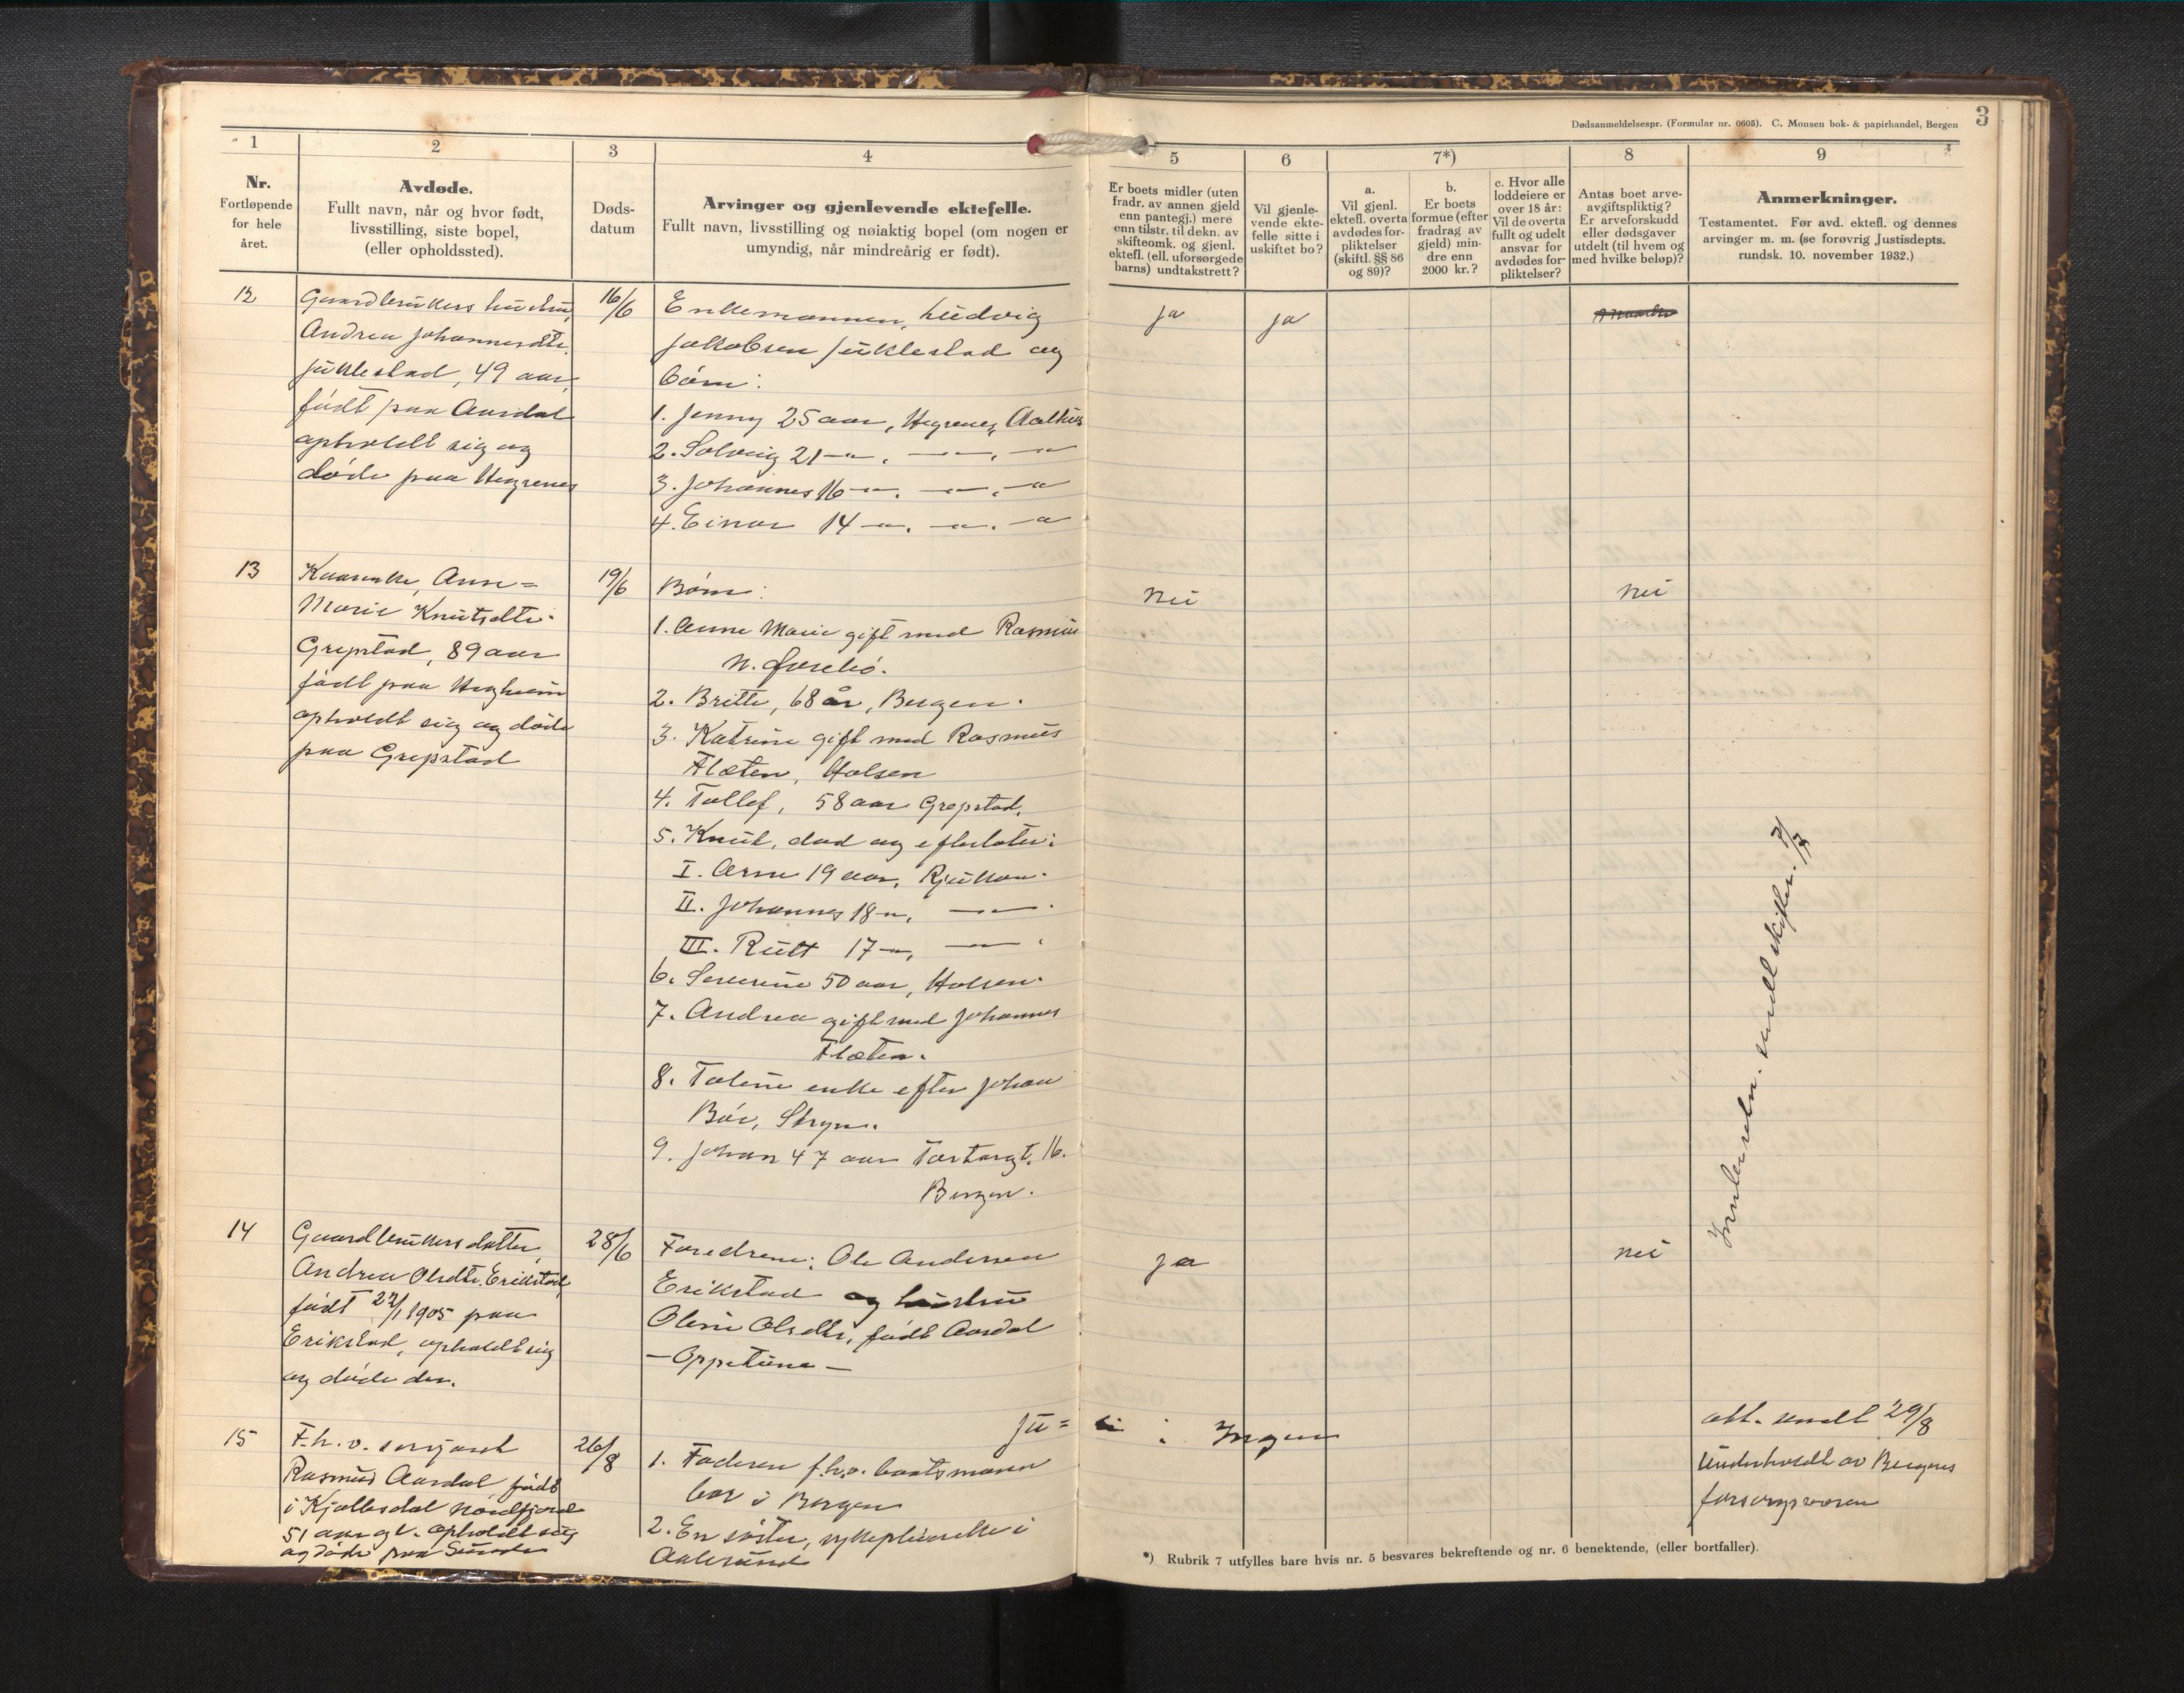 3
Dødsanmeldelsespr. (Formular nr. 0605). C. Monsen bok- & papirhandel, Bergen
1
2
3
4
5
6
7*)
8
9
Nr.
Fortløpende
for hele
året.
Avdøde.
Fullt navn, når og hvor født,
livsstilling, siste bopel,
(eller opholdssted).
Døds-
datum
Arvinger og gjenlevende ektefelle.
Fullt navn, livsstilling og nøiaktig bopel (om nogen er
umyndig, når mindreårig er født).
Er boets midler (uten
fradr. av annen gjeld
enn pantegj.) mere
enn tilstr. til dekn. av
skifteomk. og gjenl.
ektefl. (ell. uforsørgede
barns) undtakstrett?
Vil gjenle-
vende ekte-
felle sitte i
uskiftet bo?
a.
Vil gjenl.
ektefl. overta
avdødes for-
pliktelser
(skiftl. §§ 86
og 89)?
b.
Er boets
formue (efter
fradrag av
gjeld) min-
dre enn
2000 kr.?
c. Hvor alle
loddeiere er
over 18 år:
Vil de overta
fullt og udelt
ansvar for
avdødes for-
pliktelser?
Antas boet arve-
avgiftspliktig?
Er arveforskudd
eller dødsgaver
utdelt (til hvem og
med hvilke beløp)?
Anmerkninger.
Testamentet. Før avd. ektefl. og dennes
arvinger m. m. (se forøvrig Justisdepts.
rundsk. 10. november 1932.)
12
Gaardbrukers hustru,
Andrea Johannesdtr.
Juklestad, 49 aar,
født paa Aardal
opholdt sig og
døde paa Hegrenes
16/6
Enkemannen, Ludvig
Jakobsen Juklestad og
børn:
1. Jenny 25 aar, Hegrenes,
2. Solveig 21 —"—, —"—, —"
3. Johannes 16 —"—, —"—, —"
4. Einar 14 —"—, —"—, —"
ja
ja
13
Kaarenke, Anne=
Marie Knutsdtr.
Grepstad, 89 aar
født paa Hegheim
opholdt sig og døde
paa Grepstad
19/6
Børn:
1. Anne Marie gift med Rasmus
N. Føsebø.
2. Britte, 68 år, Bergen.
3. Katrine gift med Rasmus
Flæten, Holsen
4. Tollef, 58 aar Grepstad.
5. Knut, død og efterlater:
I. Arne 19 aar, Rjukan.
II. Johannes 18 —"—, —"—.
III. Rutt 17 —"—, —"—.
6. Severine 50 aar, Holsen.
7. Andrea gift med Johannes
Flæten.
8. Taline enke efter Johan
Bøe, Stryn.
9. Johan 47 aar 16.
Bergen.
nei
nei
Innberetn. sendt skifter. 3/7
14
Gaardbrukersdatter,
Andrea Olsdtr. Erikstad,
født 22/1 1905 paa
Erikstad, opholdt sig
og døde der.
28/6
Foreldrene: Ole Andersen
Erikstad og hustru
Oline Olsdtr, født Aardal
— Oppetune —
ja
nei
Ju=
li: Ingen
15
F.h.v. sersjant
Rasmus Aardal, født
i Kjøllesdal Nordfjord
51 aar gl. opholdt sig
og døde paa Sunde
26/8
1. Faderen f.h.v. baatsmann
bor i Bergen
2. En søster, sykepleierske i
Aalesund
att. sendt 29/8
Underholdt av Bergens
forsorgsvæsen
*) Rubrik 7 utfylles bare hvis nr. 5 besvares bekreftende og nr. 6 benektende, (eller bortfaller).